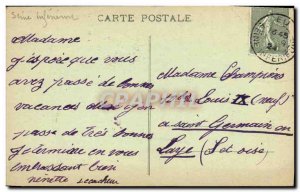 Seine inférieure
CARTE POSTALE
Madame
j'espère que vous
avez passé de bonnes
vacances
passe de très bonnes
je termine en vous
embrassant bien
ninette
Madame Champion
rue Louis IX (neuf)
a saint Germain en
Laye (S et oise)